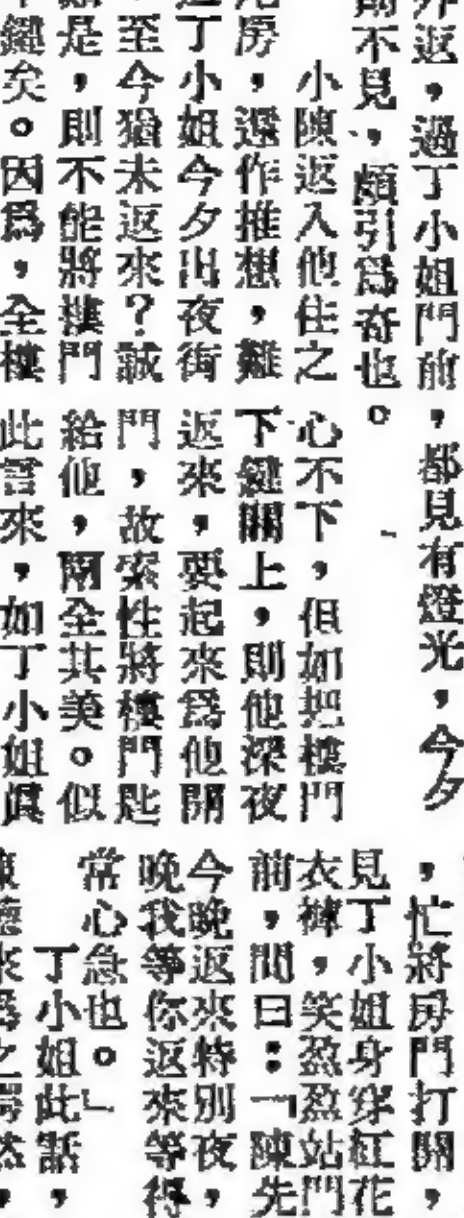 外返，過丁小姐門前，都見有燈光，今夕
前不見，頗引爲奇也。
小陳返入他住之
房，還作推想，難
丁小姐今夕出夜街
至今猶未返來？誠
是，則不能將樓門
鍵矣。因爲，全樓
心不下，但如把樓門
下鍵關上，則他深夜
返來，要起來爲他開
門，故索性將樓門匙
給他，兩全其美。似
此言來，如丁小姐眞
，忙將房門打開，
見丁小姐身穿紅花
衣褲，笑盈盈站門
前，問曰：「陳先
今晚返來特別夜，
晚我等你返來等得
常心急也。」
丁小姐此話，
聽來爲之愕然，